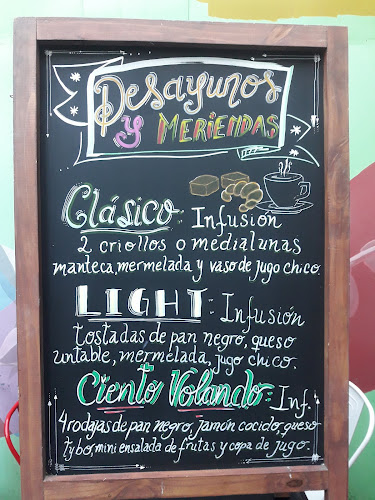 Desayunos
y MERIENDAS
Clásico: Infusión
2 criollos o medialunas
manteca, mermelada y vaso de jugo chico.
LIGHT: Infusión
tostadas de pan negro, queso
untable, mermelada, jugo chico.
Ciento Volando: Inf.
4 rodajas de pan negro, jamón cocido, queso
tybo, mini ensalada de frutas y copa de jugo.